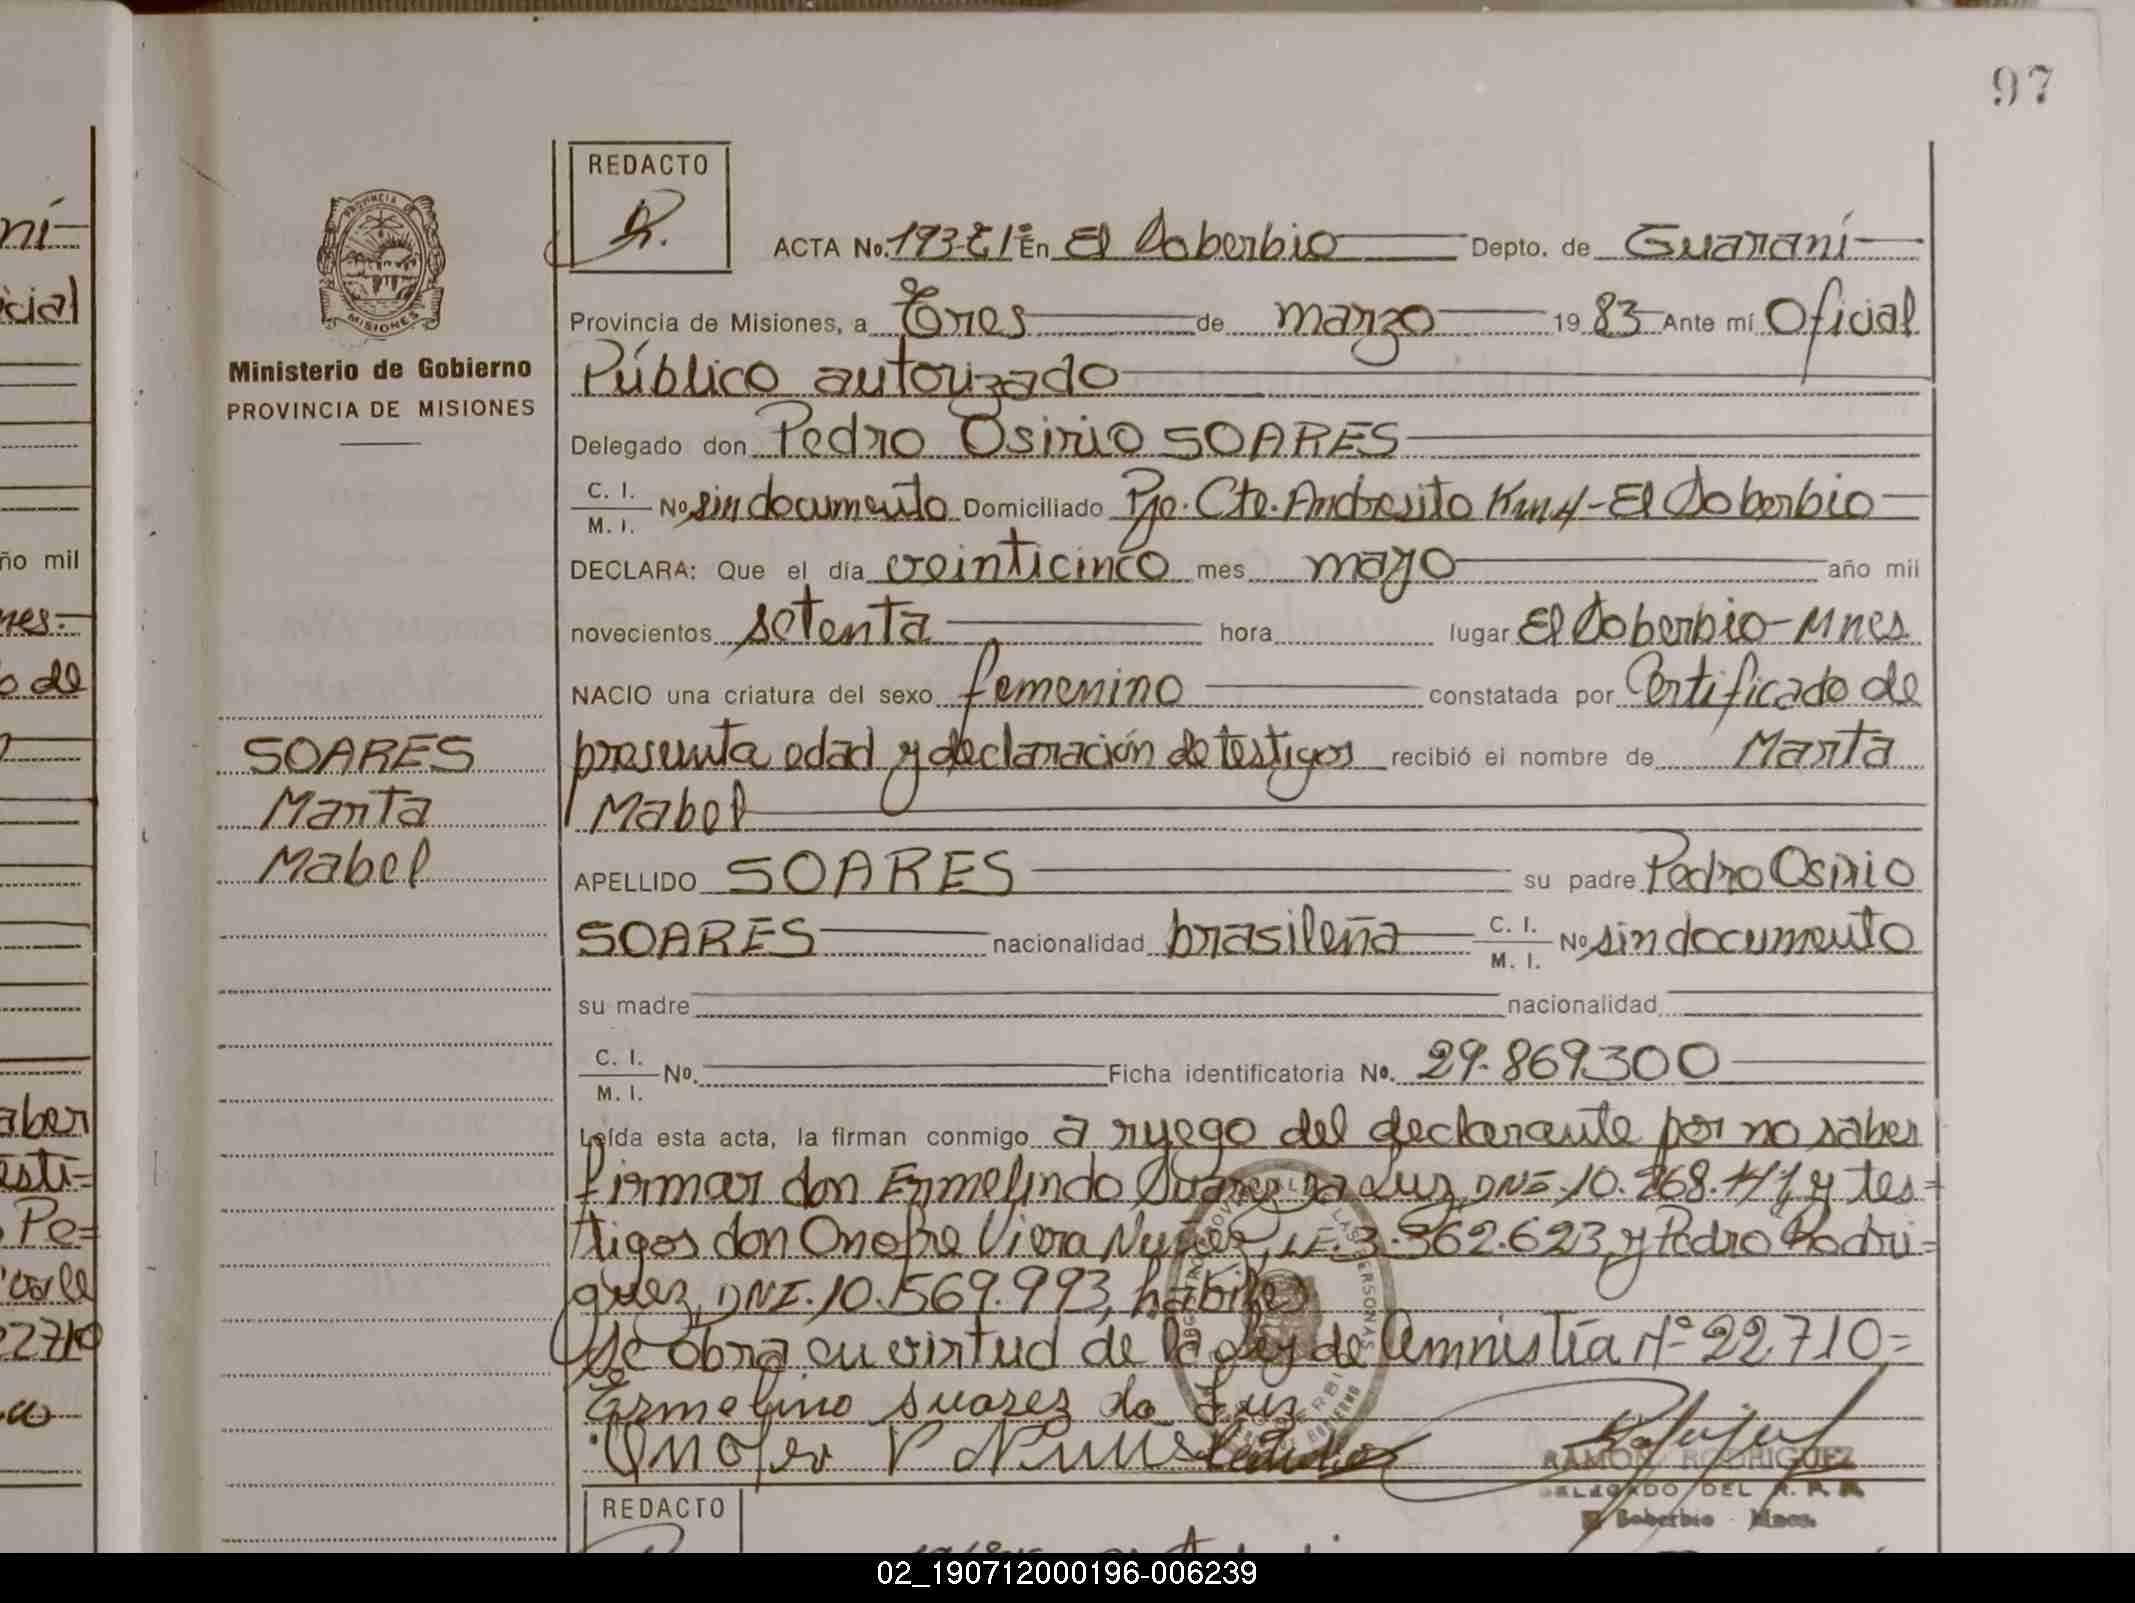 97
REDACTO
ACTA No. 193-E1º En El Soberbio Depto. de Guaraní
Provincia de Misiones, a Tres de marzo 19 83 Ante mí Oficial
Público autorizado
Delegado don Pedro Osirio SOARES
C. I. / M. I. No sin documento Domiciliado Pje. Cte. Andresito Km 4-El Soberbio
DECLARA: Que el día veinticinco mes mayo año mil
novecientos setenta hora lugar El Soberbio-Mnes
NACIO una criatura del sexo femenino constatada por Certificado de
presunta edad y declaración de testigos recibió el nombre de Marta
Mabel
APELLIDO SOARES su padre Pedro Osirio
SOARES nacionalidad brasileña C. I. / M. I. No sin documento
su madre nacionalidad
C. I. / M. I. No. Ficha identificatoria No. 29.869.300
Leída esta acta, la firman conmigo a ruego del declarante por no saber
firmar don Ermelindo Suarez da Luz, DNI. 10. y tes=
tigos don Onofre Viera Nuñez, LE. 3.362.623 y Pedro Rodri=
guez, DNI. 10.569.993, habiles
Se obra en virtud de la Ley de Amnistía Nº 22.710=
Ermelino Suarez da Luz
Onofre V
RAMON RODRIGUEZ
DELEGADO DEL R. P. P.
El Soberbio - Mnes.
REDACTO
PROVINCIA DE
MISIONES
Ministerio de Gobierno
PROVINCIA DE MISIONES
SOARES
Marta
Mabel
ní
cial
ño mil
nes.
o de
aber
esti=
Pe=
22710
02_190712000196-006239